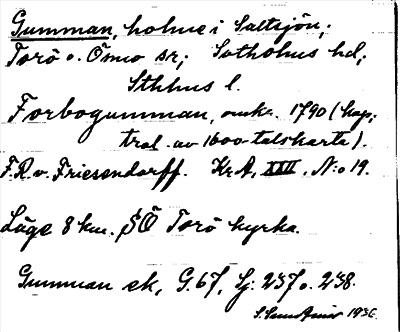 Gumman, holme i Saltsjön;
Torö o. Ösmo sr; Sotholms hd;
Sthlms l.
Forbogumman, omkr. 1790 (kop;
trol. av 1600-talskarta).
F.R.v. Friesendorff. Kr.A, XXII, N:o 19.
Läge 8 km. SÖ Torö kyrka.
Gumman ek, G. 67, Lj. 237 o. 238.
1936.